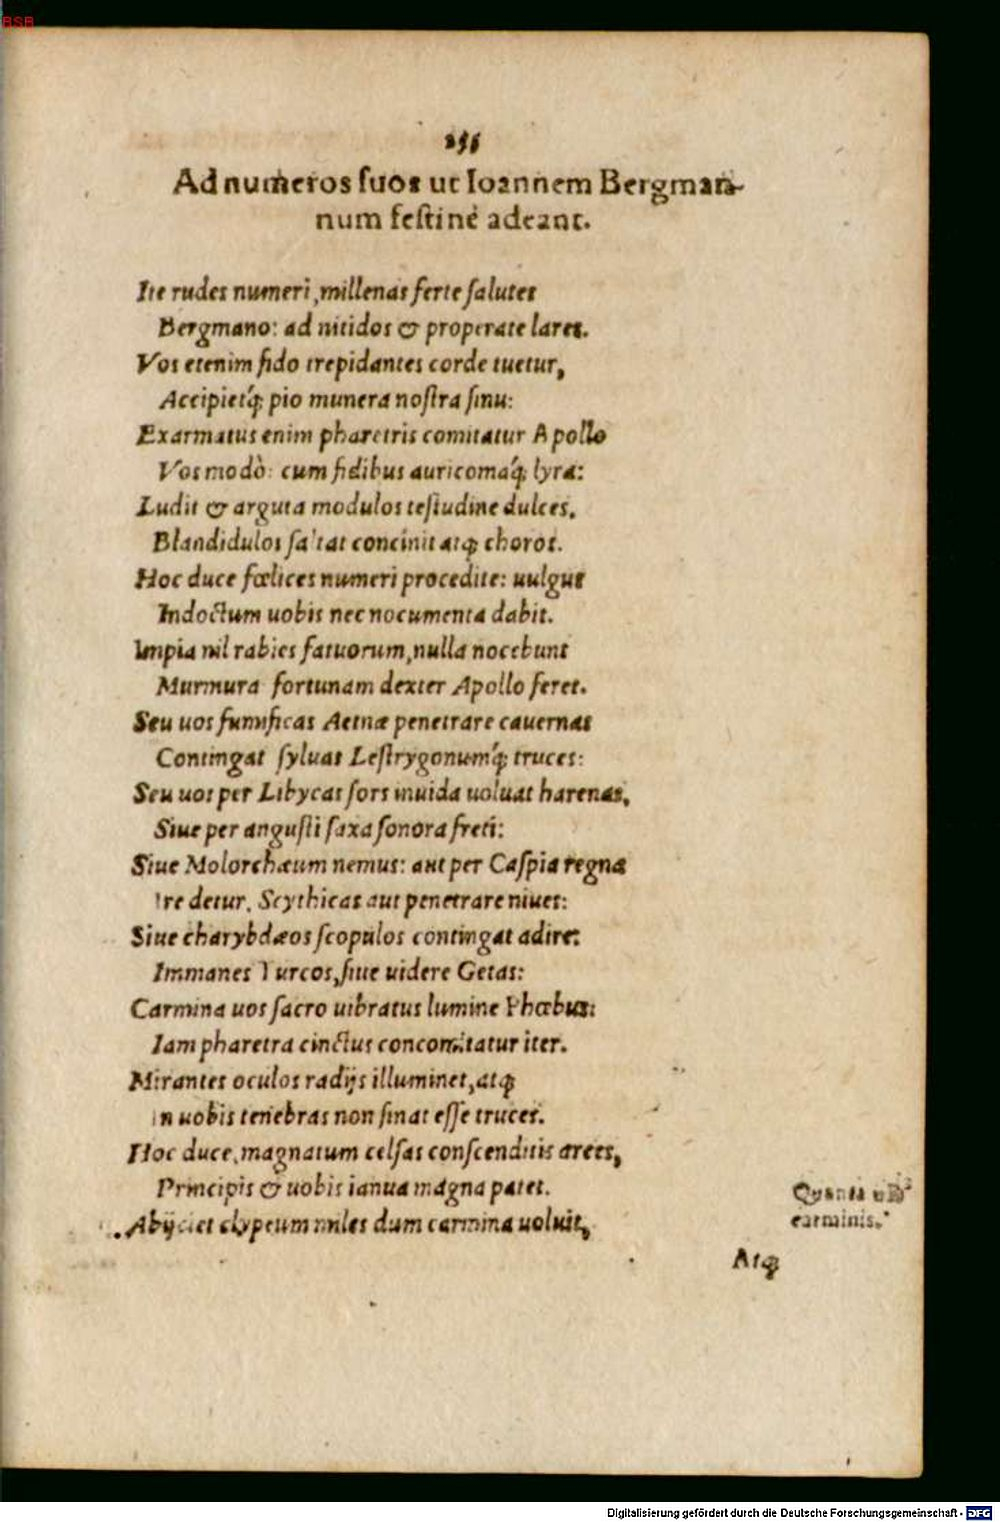 BSB
Ad numeros ſuos ut Ioannem Bergman-
num feſtinè adeant.
Ite rudes numeri, millenas ferte ſalutes
Bergmano: ad nitidos & properate lares.
Vos etenim fido trepidantes corde tuetur,
Accipietq́; pio munera noſtra ſinu:
Exarmatus enim pharetris comitatur Apollo
Vos modò: cum fidibus auricomaq́; lyra:
Ludit & arguta modulos teſtudine dulces.
Blandidulos ſaltat concinit atq; choros.
Hoc duce fœlices numeri procedite: uulgus
Indoctum uobis nec nocumenta dabit.
Impia nil rabies fatuorum, nulla nocebunt
Murmura fortunam dexter Apollo feret.
Seu uos fumificas Aetnæ penetrare cauernas
Contingat ſyluas Leſtrygonumq́; truces:
Seu uos per Libycas ſors inuida uoluat harenas,
Siue per anguſti ſaxa ſonora freti:
Siue Molorchæum nemus: aut per Caſpia regna
Ire detur. Scythicas aut penetrare niues:
Siue charybdæos ſcopulos contingat adire:
Immanes Turcos, ſiue uidere Getas:
Carmina uos ſacro uibratus lumine Phœbus:
Iam pharetra cinctus concomitatur iter.
Mirantes oculos radijs illuminet, atq;
In uobis tenebras non ſinat eſſe truces.
Hoc duce, magnatum celſas conſcenditis arces,
Principis & uobis ianua magna patet.
Abijciet clypeum miles dum carmina uoluit,
Quanta
carminis.
Atq;
Digitalisierung gefördert durch die Deutsche Forschungsgemeinschaft - DFG